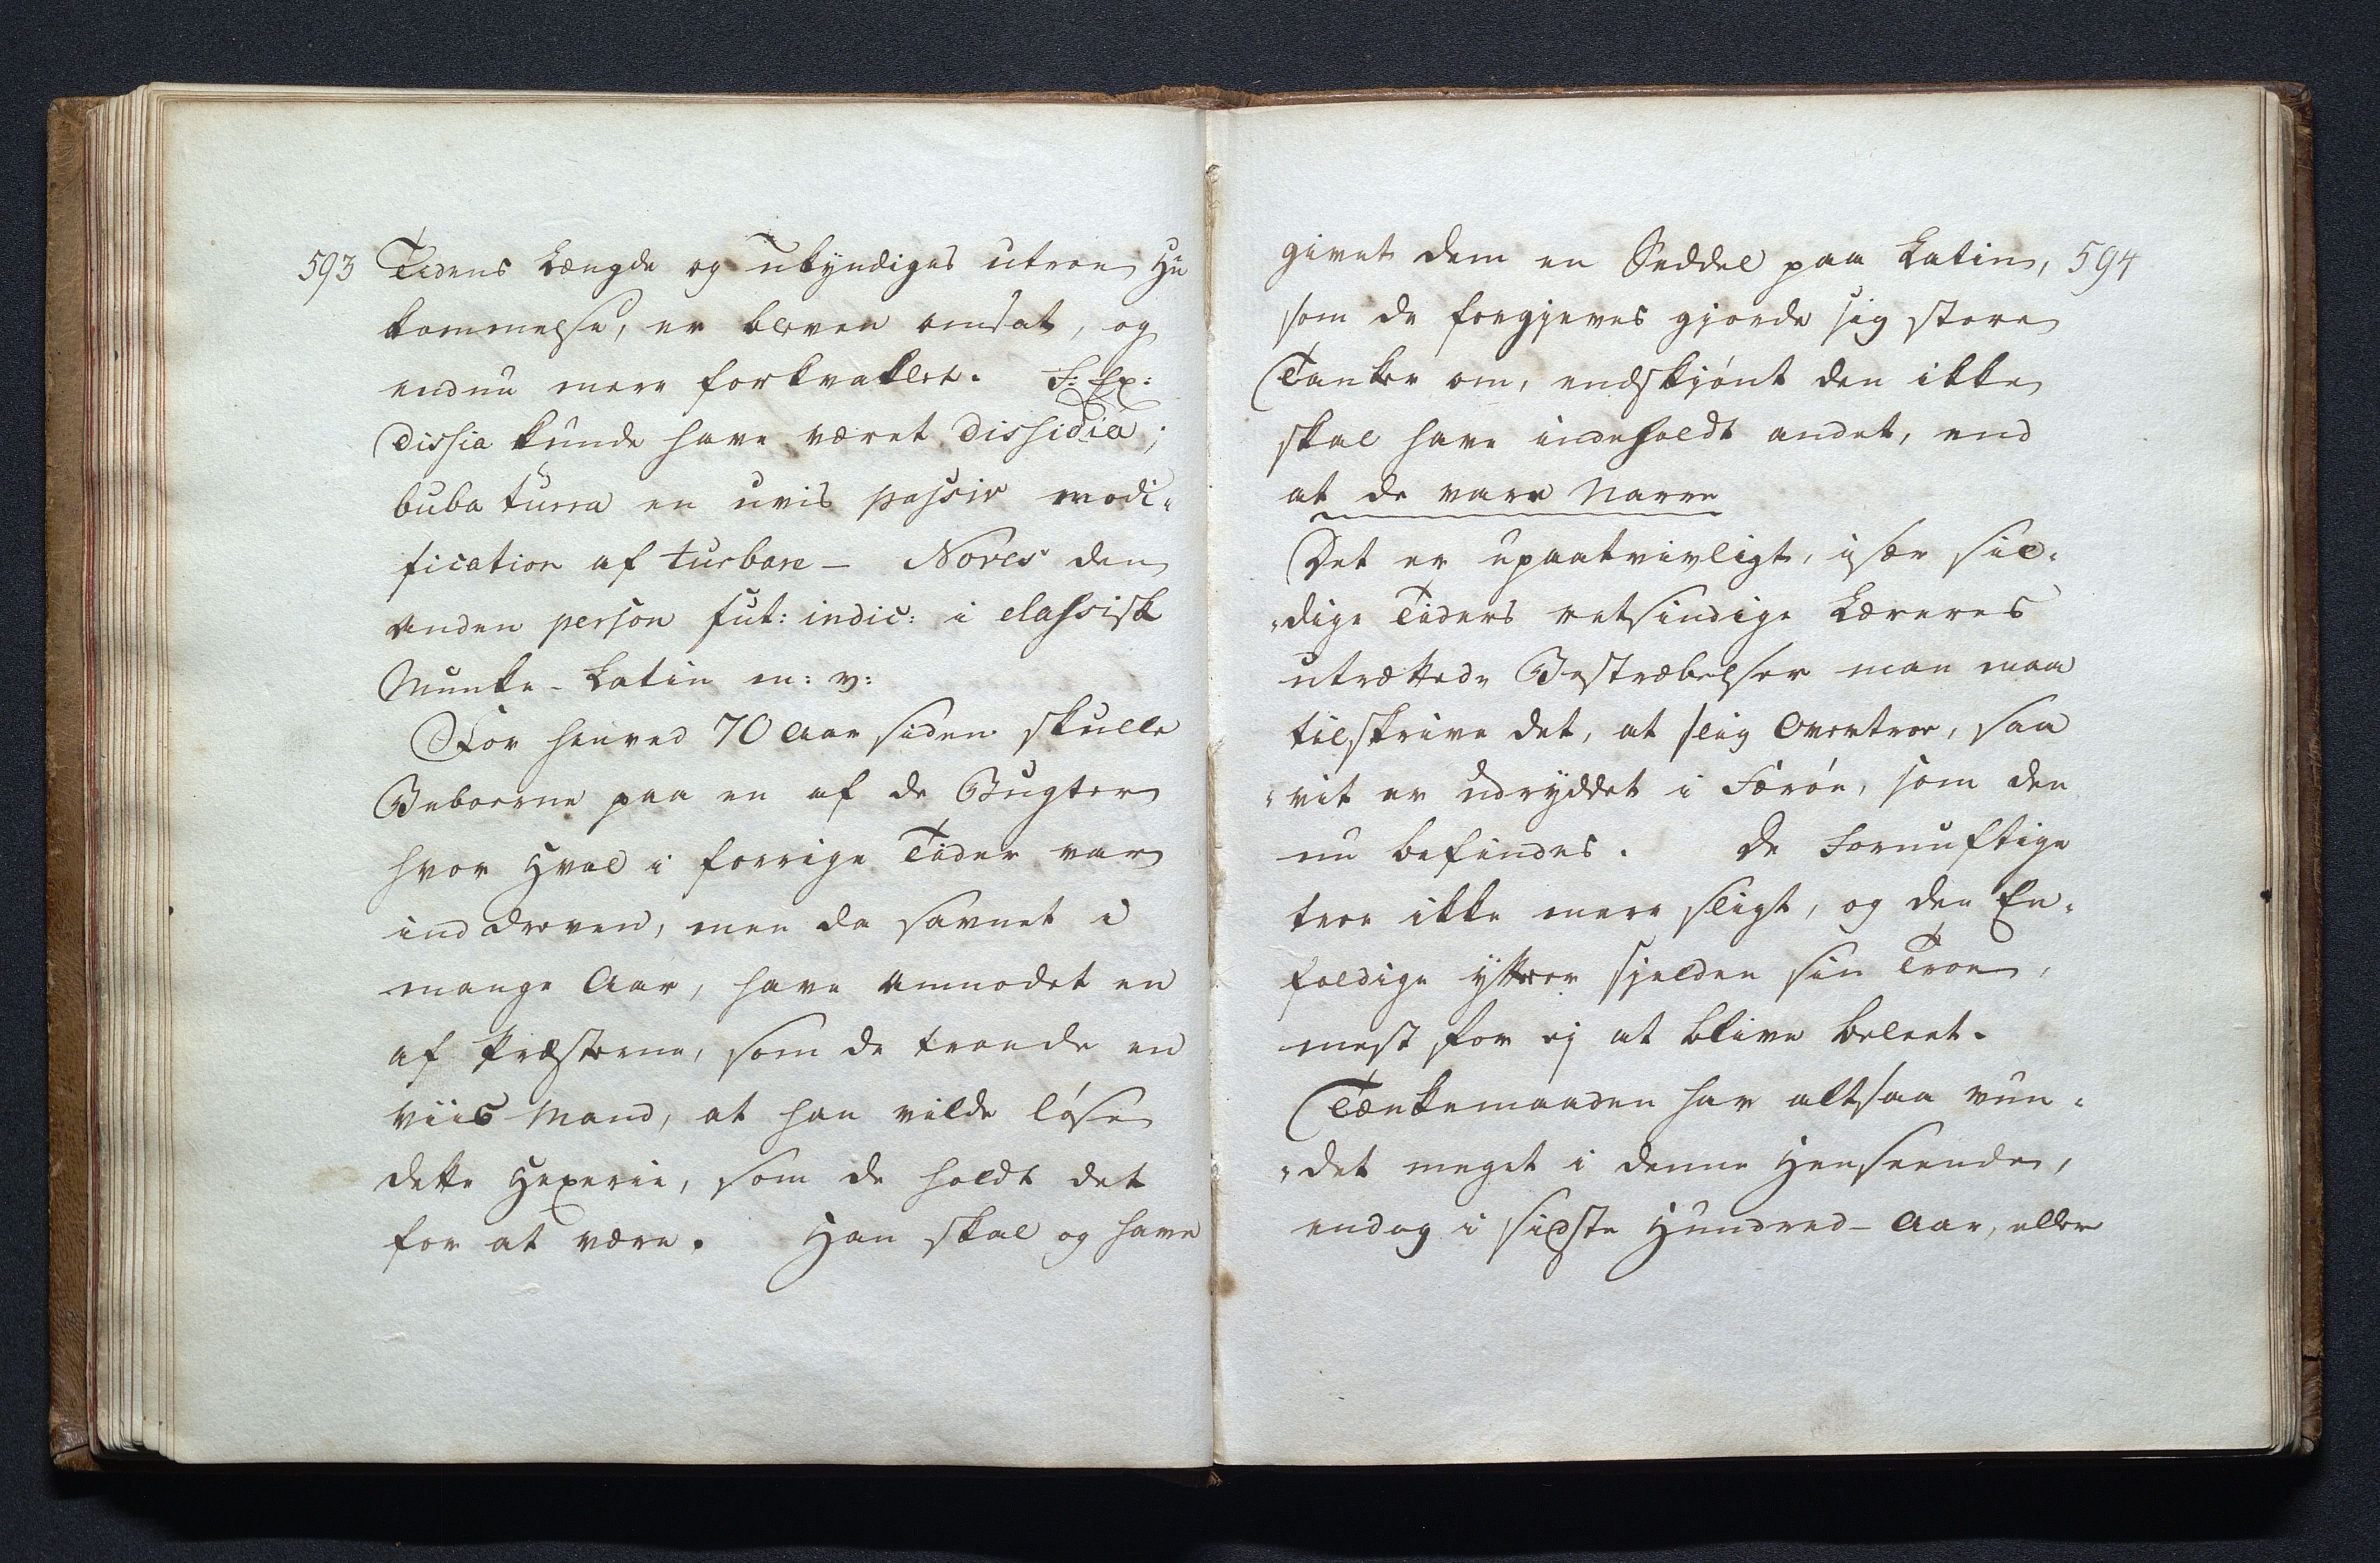 593 Tidens Længde og ukyndiges utroe Hu
kommelse, er bleven omsat, og
endnu mere forkvaklet. F: Ex:
Dissia kunde have været Dissidia;
buba turra en uvis passiv modi-
fication af turbare – Noves den
anden person fut: indic: i classisk
Munke-Latin m: v:
For henved 70 Aar siden skulle
Beboerne paa en af de Bugter
hvor Hval i forrige Tider var
inddreven, men da savnet i
mange Aar, have anmodet en
af Præsterne, som de troede en
viis Mand, at han vilde løse
dette Hexerie, som de holdt det
for at være. Han skal og have
givet dem en Seddel paa Latin, 594
som de forgjeves gjorde sig store
Tanker om, endskjønt den ikke
skal have indeholdt andet, end
at de vare Narre
Det er upaatvivligt, især sil-
-dige Tiders retsindige Læreres
utrættede Bestræbelser man maa
tilskrive det, at slig Overtroe, saa
-vit er udryddet i Færøe, som den
nu befindes. De Fornuftige
troe ikke mere sligt, og den En-
foldige yttrer sjelden sin Troe,
mest for ej at blive beleet.
Tænkemaaden har altsaa vun-
-det meget i denne Henseende,
endog i sidste Hundred-Aar, eller